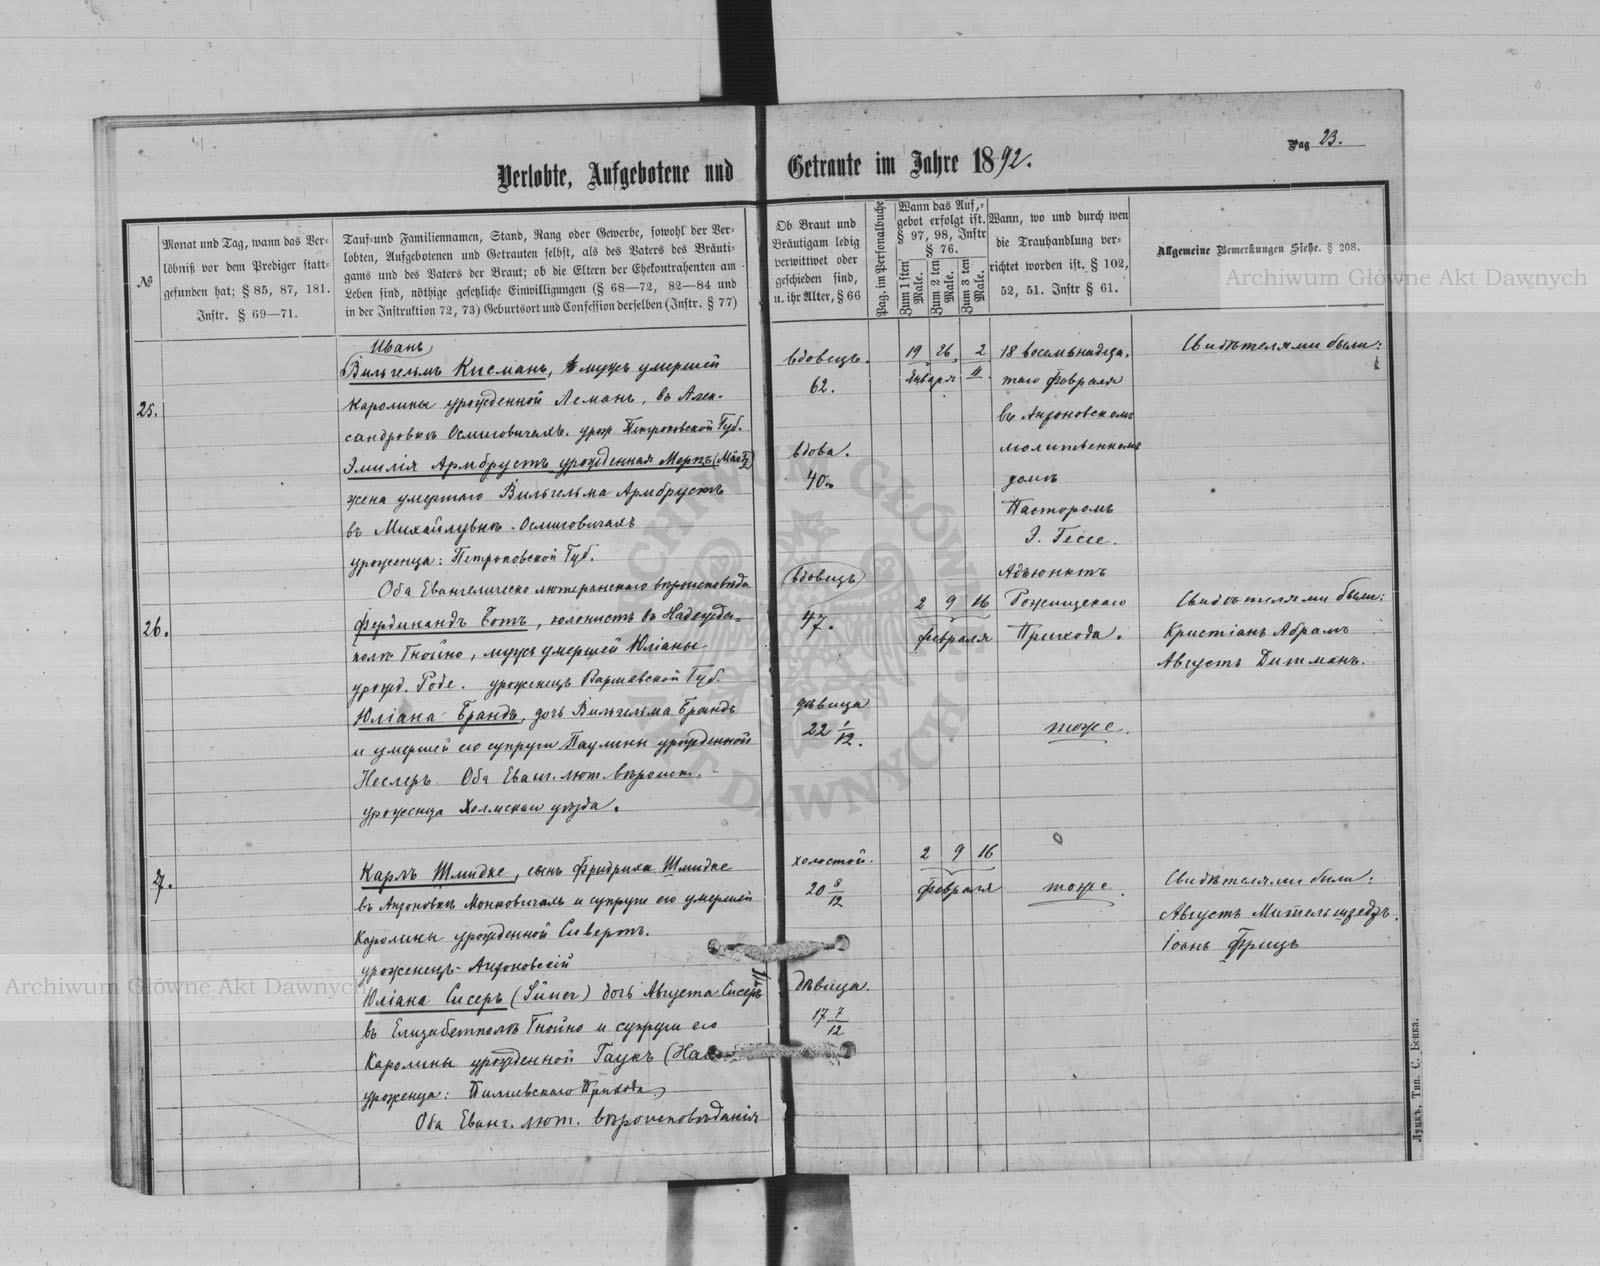 Pag 23.
Verlobte, Aufgebotene und Getraute im Jahre 1892.
№
Monat und Tag, wann das Ver-
löbniß vor dem Prediger statt-
gefunden hat; § 85, 87, 181.
Instr. § 69—71.
Tauf-und Familiennamen, Stand, Rang oder Gewerbe, sowohl der Ver-
lobten, Aufgebotenen und Getrauten selbst, als des Vaters des Bräuti-
gams und des Vaters der Braut; ob die Eltern der Ehekontrahenten am
Leben sind, nöthige gesetzliche Einwilligungen (§ 68—72, 82—84 und
in der Instruktion 72, 73) Geburtsort und Confession derselben (Instr. § 77)
Ob Braut und
Bräutigam ledig
verwittwet oder
geschieden sind,
u. ihr Alter, § 66
Pag. im Personalbuche
Wann das Auf-
gebot erfolgt ist.
§ 97, 98, Instr
§ 76.
Zum 1 sten Male.
Zum 2 ten Male.
Zum 3 ten Male.
Wann, wo und durch wen
die Trauhandlung ver-
richtet worden ist. § 102,
52, 51. Instr § 61.
Allgemeine Bemerkungen Siehe. § 208.
25.
Иванъ
Вильгельмъ Кисманъ, мужъ умершей
Каролины урожденной Леманъ, въ Алек-
сандровкѣ Осмиговичахъ. урож. Петроковской Губ.
Эмилія Армбрустъ урожденная Мерцъ
жена умершаго Вильгельма Армбрустъ
въ Михайлувкѣ-Осмиговичахъ
уроженица: Петроковской Губ.
Оба Евангелическо лютеранскаго вѣроисповѣда
вдовецъ.
62.
вдова.
40.
19 26 2
Января II
18 восемьнадца,
таго Февраля
въ Антоновскомъ
молитвенномъ
домѣ
Пасторомъ
Э. Гессе.
Адъюнктъ
Рожищскаго
Прихода.
Свидѣтелями были:
26.
Фердинандъ Ботъ, колонистъ въ Надежда-
полѣ Гнойно, мужъ умершей Юліаны
урожд. Роде. уроженецъ Варшавской Губ.
Юліана Брандъ, дочь Вильгельма Брандъ
и умершей его супруги Паулины урожденной
Неслеръ. Оба Еванг. лют. вѣроисп.
уроженица Холмскаго уѣзда.
вдовецъ
47.
дѣвица
22 1/12.
2 9 16
февраля
тоже.
Свидѣтелями были:
Кристіанъ Абрамъ
Августъ Дитманъ.
27.
Карлъ Шмидке, сынъ Фридриха Шмидке
въ Антоновкѣ Монковичахъ и супруги его умершей
Каролины урожденной Сивертъ.
уроженецъ-Антоновскій
Юліана Сисеръ дочь Августа Сисеръ
въ Елизабетполѣ Гнойно и супруги его
Каролины урожденной Гаукъ
уроженица: Пилиевскаго Прихода
Оба Еванг. лют. вѣроисповѣданія
холостой.
20 8/12
Дѣвица.
17 7/12
2 9 16
февраля
тоже.
Свидѣтелями были:
Августъ Мительштедтъ.
Іоанъ Фрицъ
Луцкъ, Тип. С. Бенка.
Archiwum Główne Akt Dawnych
Archiwum Główne Akt Dawnych
ARCHIWUM GŁÓWNE AKT DAWNYCH